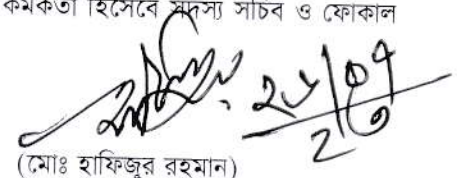 কর্মকর্তা হিসেবে সদস্য সচিব ও ফোকাল
(মোঃ হাফিজুর রহমান)